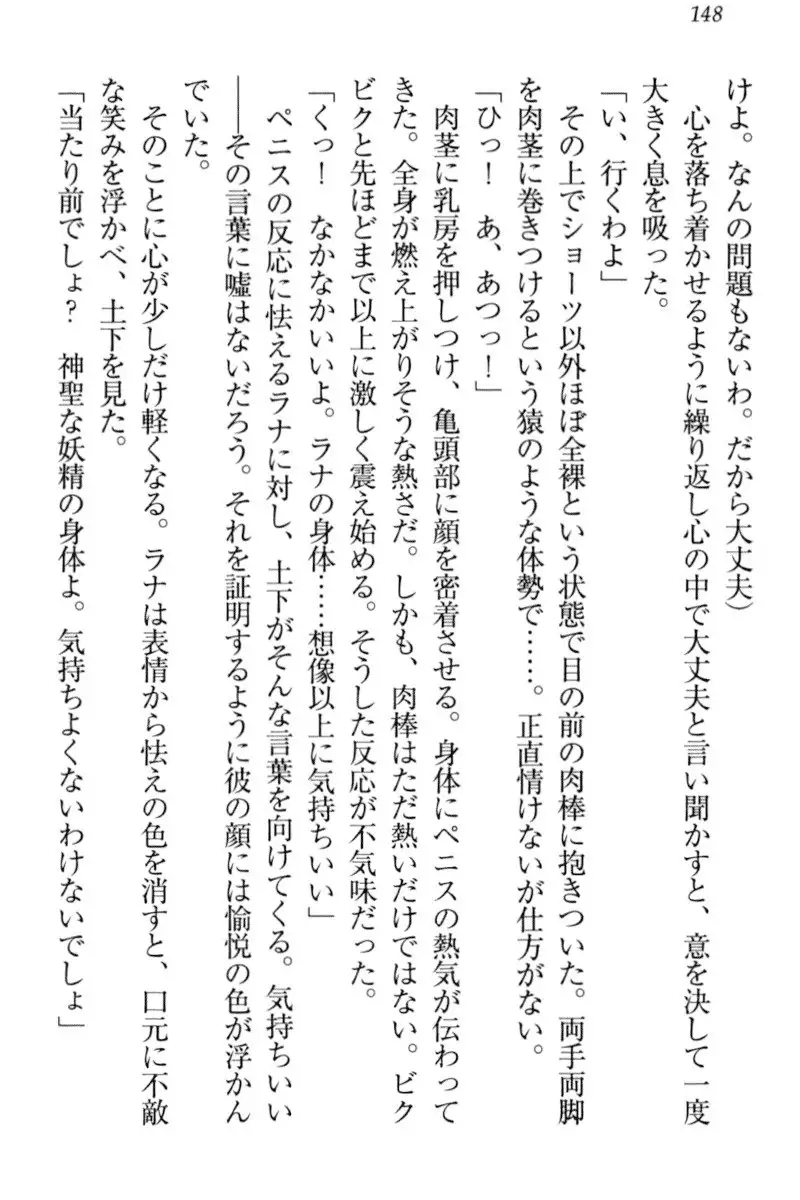 148
けよ。なんの問題もないわ。だから大丈夫）
　心を落ち着かせるように繰り返し心の中で大丈夫と言い聞かすと、意を決して一度
大きく息を吸った。
「い、行くわよ」
　その上でショーツ以外ほぼ全裸という状態で目の前の肉棒に抱きついた。両手両脚
を肉茎に巻きつけるという猿のような体勢で……。正直情けないが仕方がない。
「ひっ！　あ、あつっ！」
　肉茎に乳房を押しつけ、亀頭部に顔を密着させる。身体にペニスの熱気が伝わって
きた。全身が燃え上がりそうな熱さだ。しかも、肉棒はただ熱いだけではない。ビク
ビクと先ほどまで以上に激しく震え始める。そうした反応が不気味だった。
「くっ！　なかなかいいよ。ラナの身体……想像以上に気持ちいい」
　ペニスの反応に怯えるラナに対し、土下がそんな言葉を向けてくる。気持ちいい
――その言葉に嘘はないだろう。それを証明するように彼の顔には愉悦の色が浮かん
でいた。
　そのことに心が少しだけ軽くなる。ラナは表情から怯えの色を消すと、口元に不敵
な笑みを浮かべ、土下を見た。
「当たり前でしょ？　神聖な妖精の身体よ。気持ちよくないわけないでしょ」